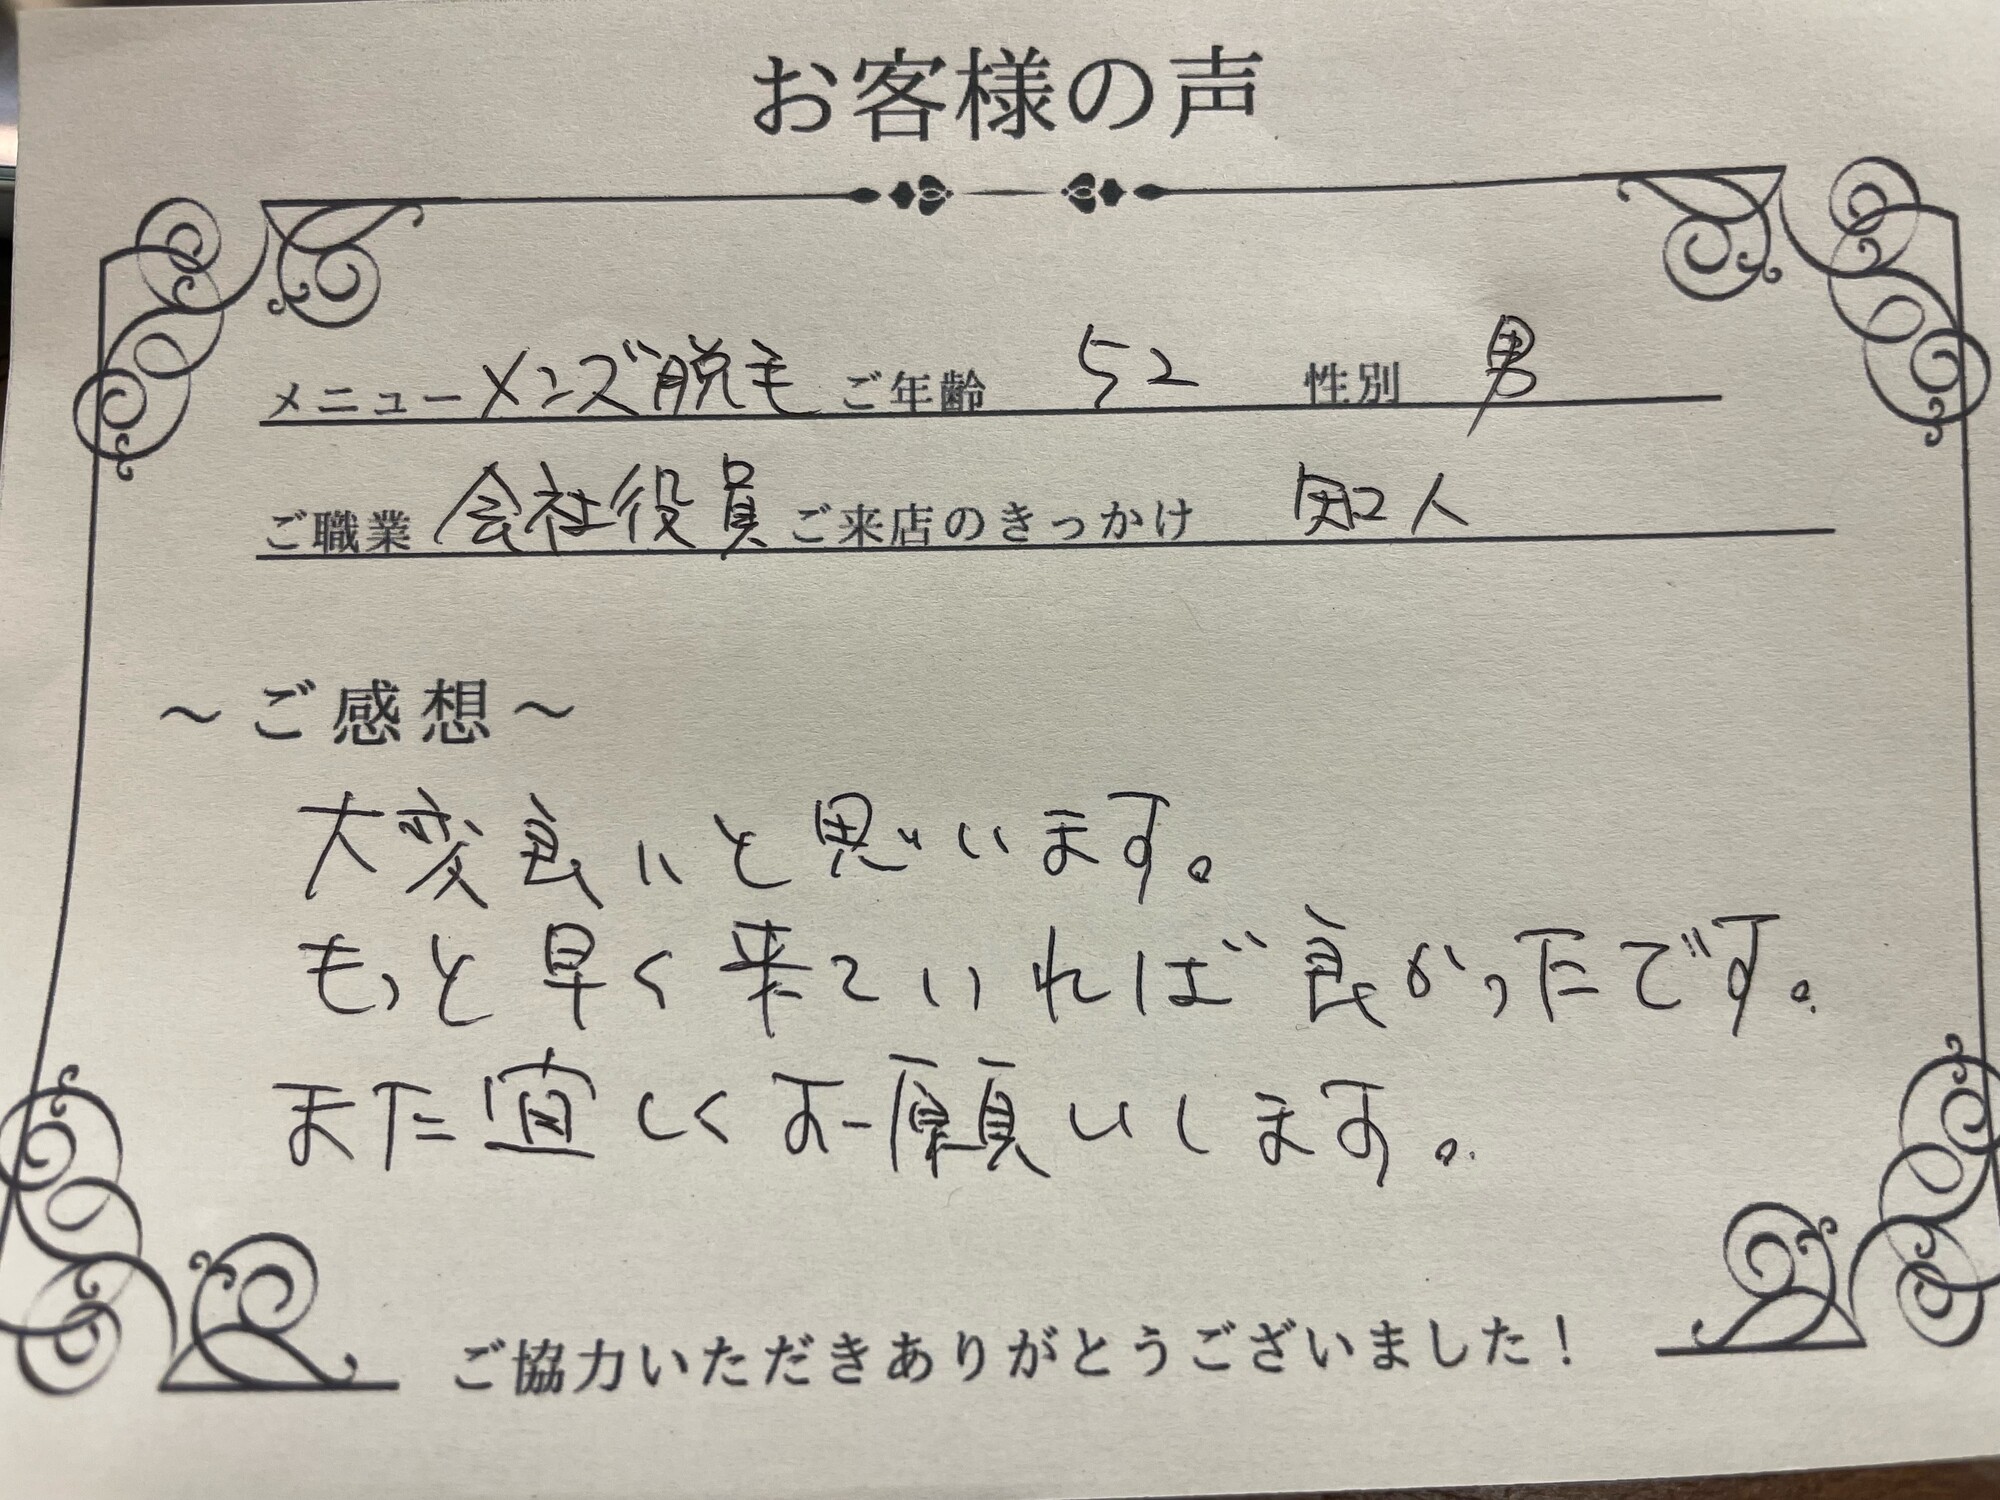 お客様の声
メニュー メンズ脱毛 ご年齢 52 性別 男
ご職業 会社役員 ご来店のきっかけ 知人
～ご感想～
大変良いと思います。
もっと早く来ていれば良かったです。
また宜しくお願いします。
ご協力いただきありがとうございました！